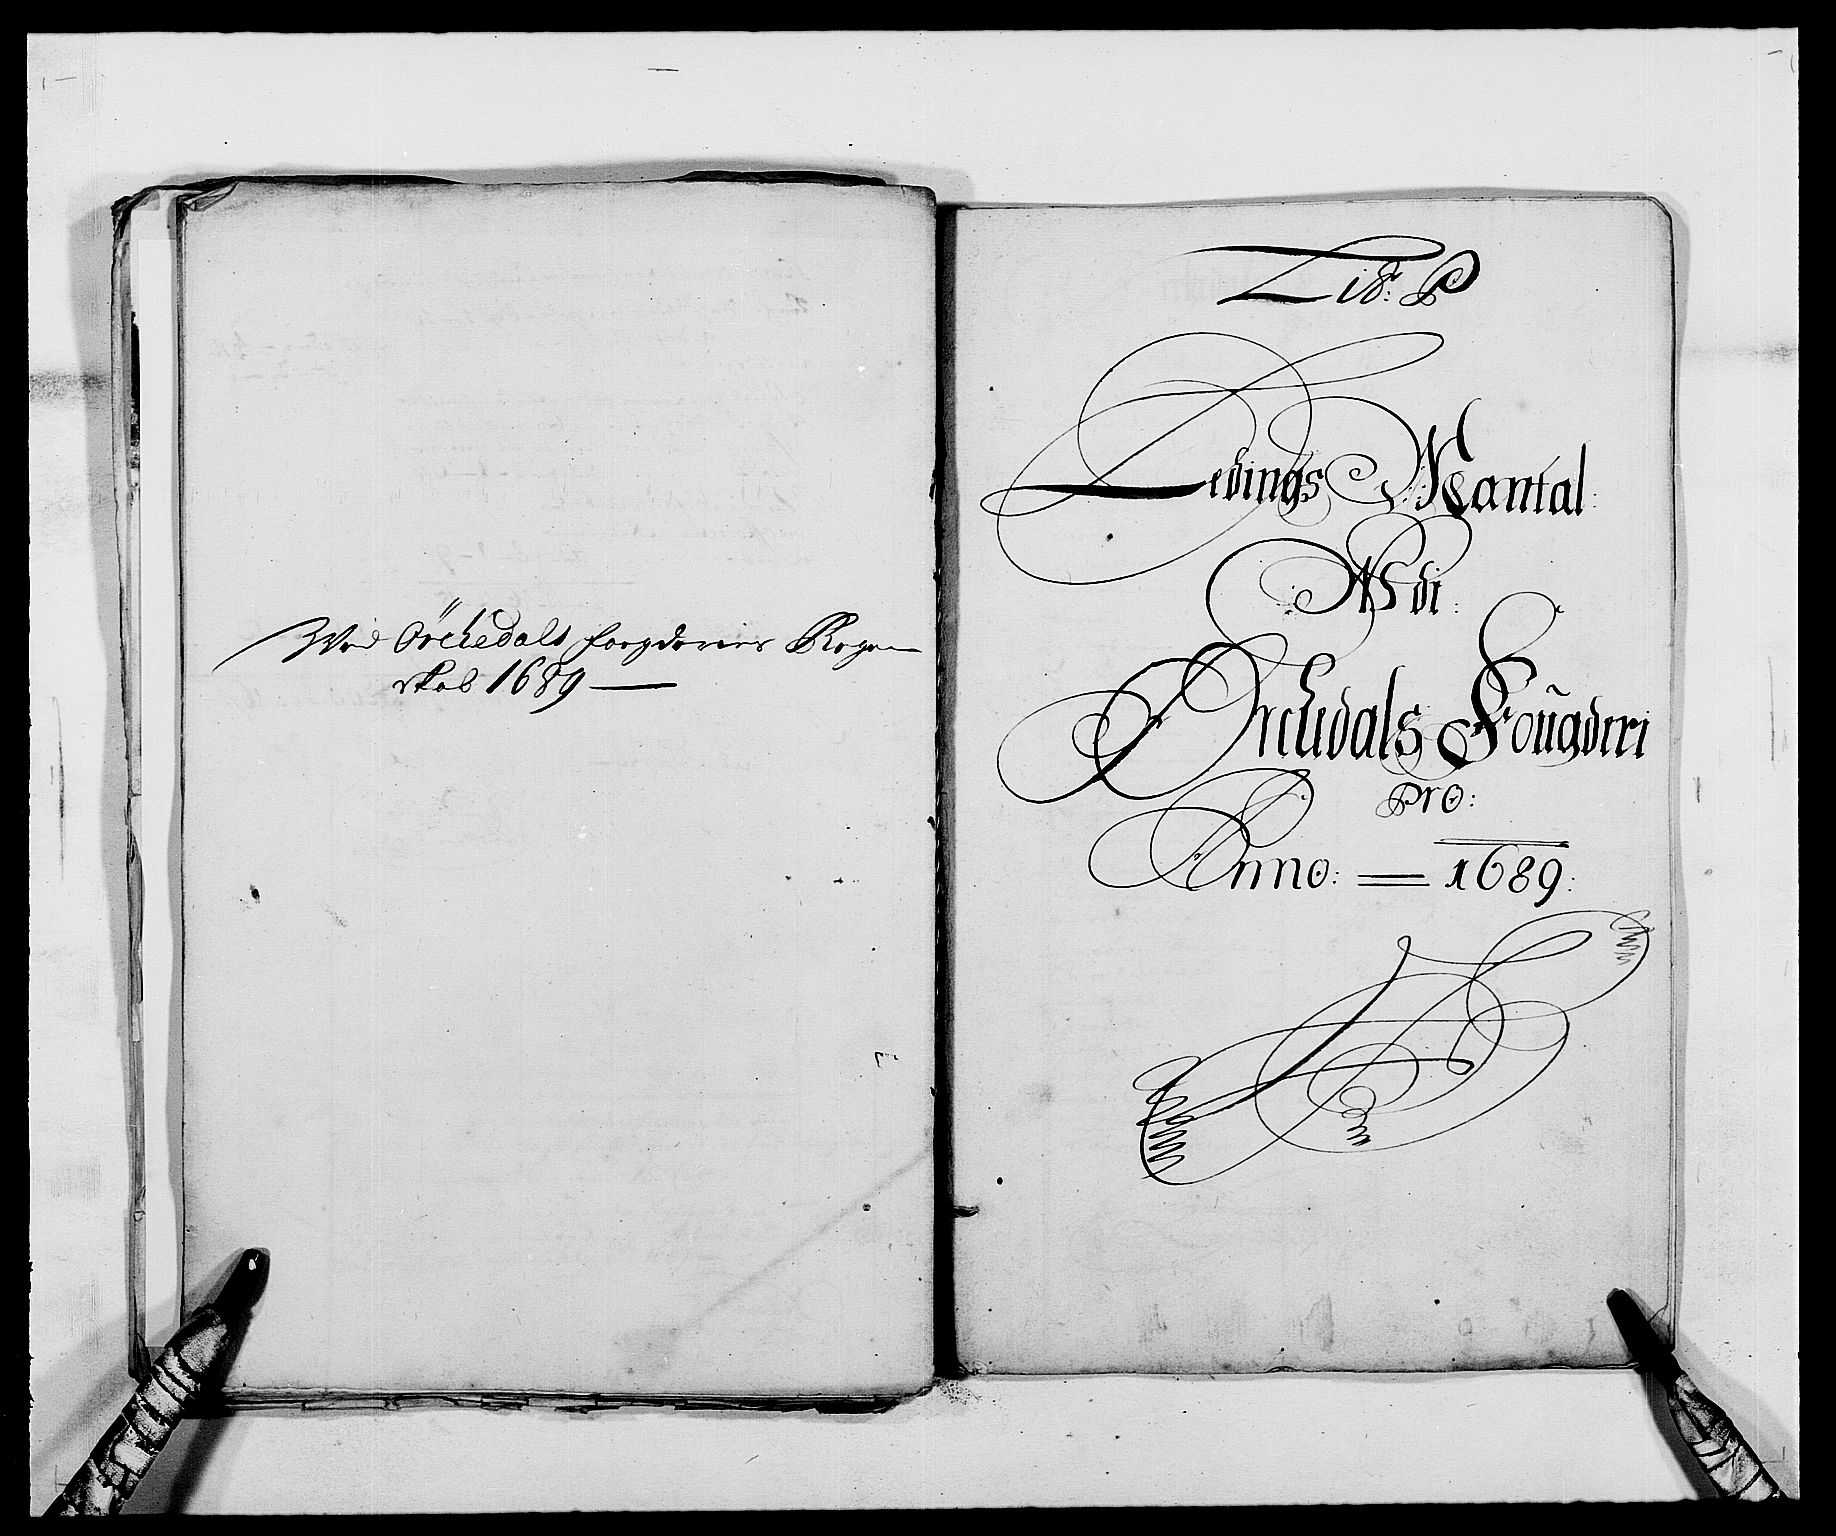 Wed Örchedals fougderies Regen
skab 1689
Lit: P
Ledings Mantal
Wdi
Orchedals Foũgderi
Pro:
Anno: 1689: